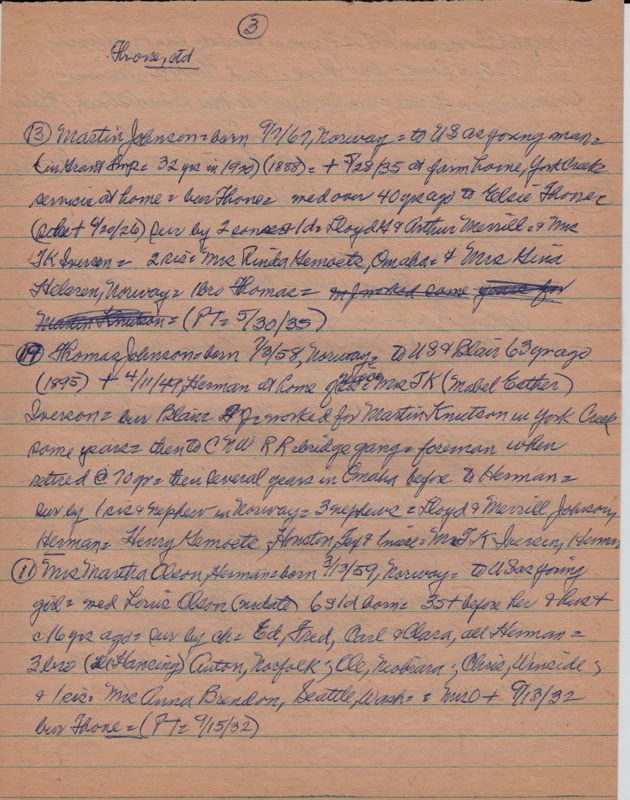 3
Thone, ctd
13 Martin Johnson = born 9/7/67, Norway = to US as young man =
(in Grant Twp = 32 yrs in 1920) (1888) = + 5/28/35 at farm home, York Creek
services at home = bur Thone = med over 40 yrs ago to Elsie Thoner
+ 9/20/26) sur by 2 sons & 1d = Lloyd H & Arthur Merrill = & Mrs
TK Iversen = 2 sis = Mrs Rinda Gemoets, Omaha = & Mrs Gina
Helgren, Norway = 1 bro Thomas = worked some years for
Martin Knutson = (PT = 5/30/35)
14 Thomas Johnson = born 7/3/58, Norway = to US & Blair 63 yr ago
(1895) + 4/11/49, Herman at home of niece = Mrs TK (Mabel Esther)
Iverson = bur Blair worked for Martin Knutson in York Creek
some years = then to CNW RR bridge gang = foreman when
retired @ 70 yr = then several years in Omaha before to Herman =
sur by 1 sis & nephew in Norway = 3 nephews = Lloyd & Merrill Johnson,
Herman = Henry Gemoets, Houston, Tex & 1 niece = Mrs TK Iversen, Herman
11 Mrs Martha Olson, Herman = born 3/13/59, Norway = to US as young
girl = med Louis Olson (nodate) 6s 1d born = 3s + before her & hus +
c 16 yrs ago = sur by ch = Ed, Fred, Carl & Clara, all Herman =
3 bro (Hansing) Anton, Norfolk; Ole, Niobrara; Chris, Winside;
& 1 sis = Mrs Anna Brendon, Seattle, Wash = = Mrs O + 9/13/32
bur Thone = (PT = 9/15/32)